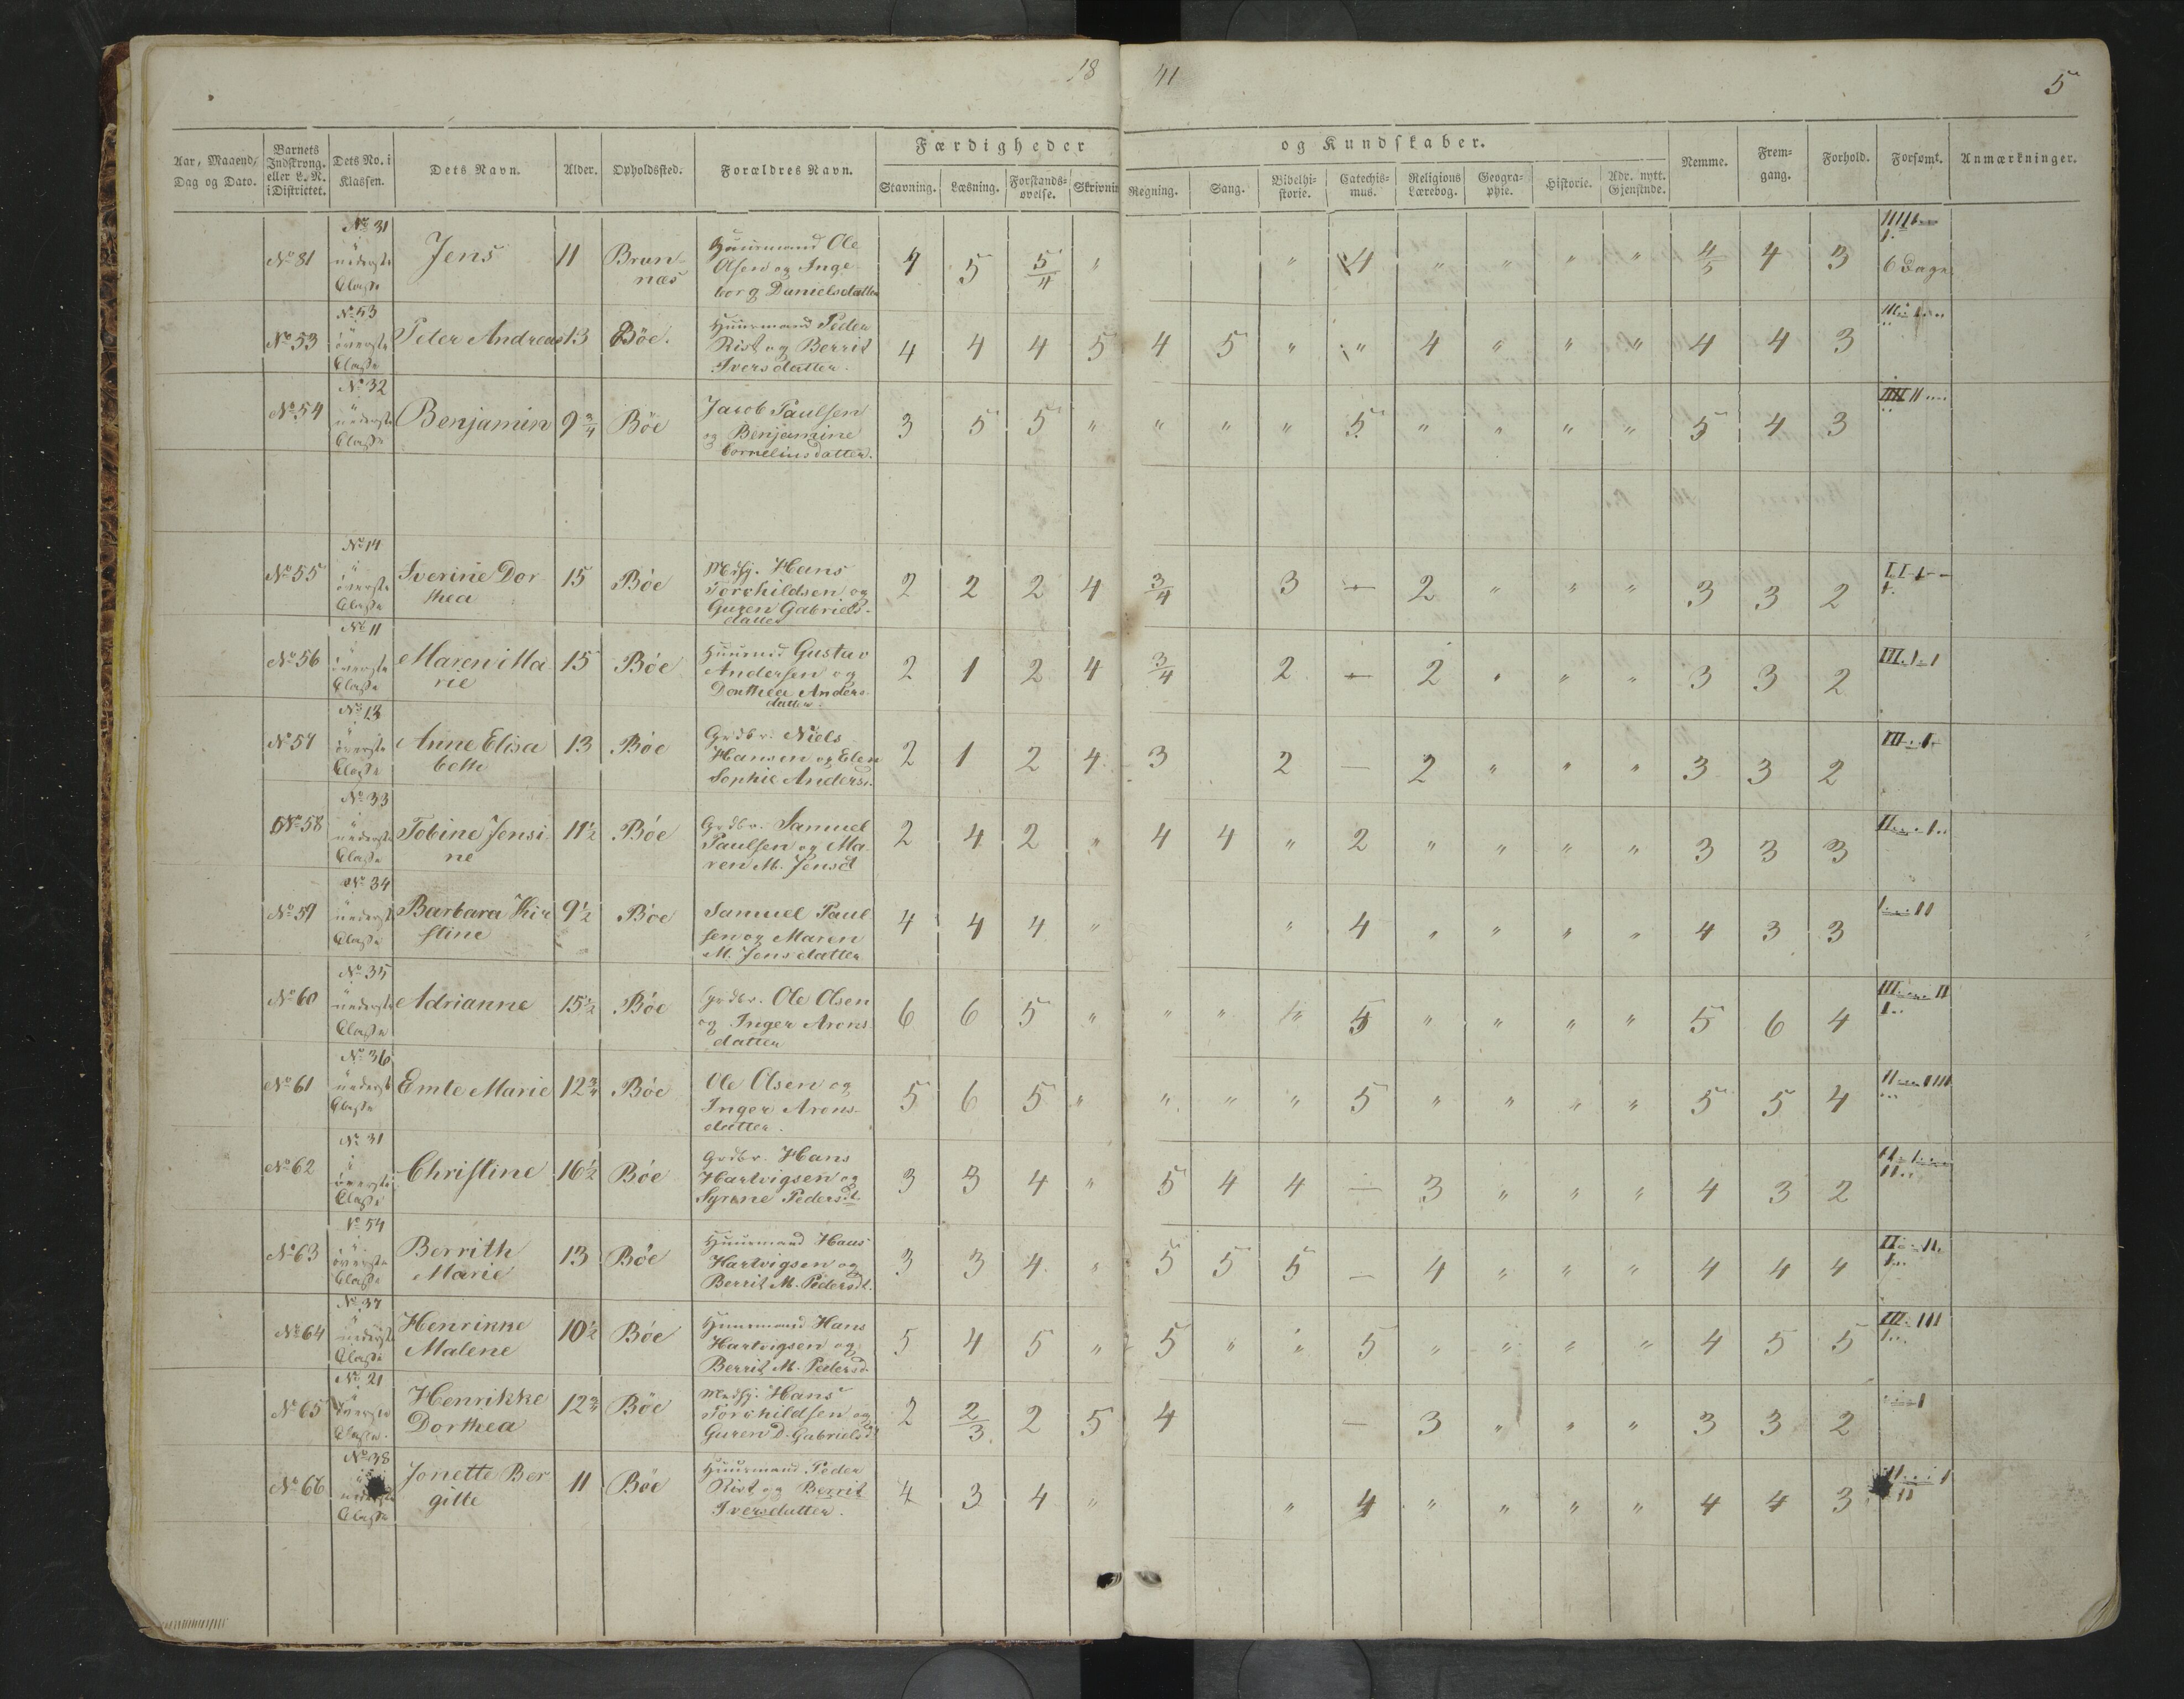 18 41 5
Færdigheder og Kundskaber.
Aar, Maaned, Dag og Dato. Barnets Indskrvng. eller L. N. i Distriktet. Dets No. i Klassen. Dets Navn. Alder. Opholdssted. Forældres Navn. Stavning. Læsning. Forstands-øvelse. Skrivnin Regning. Sang. Bibelhi-storie. Catechis-mus. Religions Lærebog. Geogra-phie. Historie. Adr. nytt. Gjenstnde. Nemme. Frem-gang. Forhold. Forsømt. Anmærkninger.
No 31
No 81 i nederste Classe Jens 11 Brun næs Huusmand Ole Olsen og Inge borg Danielsdatter 4 5 5/4 " " 4 " " " " 4/5 4 3 6 Dage
No 53
No 53 i øverste Classe Peter Andreas 13 Böe. Huusmand Peder Rist og Berrit Iversdatter. 4 4 4 5 4 5 " " 4 " " " 4 4 3
No 32
No 54 i nederste Classe Benjamin 9 3/4 Böe Jacob Paulsen og Benjamine Corneliusdatter. 3 5 5 " " " " 5 " " " " 5 4 3
No 14
No 55 i øverste Classe Iverine Dor thea 15 Böe Hans Torchildsen og Guren Gabriels-datter 2 2 2 4 3/4 3 — 2 " " " 3 3 2
No 11
No 56 i øverste Classe Maren Ma rie 15 Böe Huusmd Gustav Andersen og Dorthea Anders datter. 2 1 2 4 3/4 2 — 2 " " " 3 3 2
No 13
No 57 i øverste Classe Anne Elisa beth 13 Böe Grdbr. Niels Hansen og Elen Sophie Andersd. 2 1 2 4 3 2 — 2 " " " 3 3 2
No 33
No 58 i nederste Classe Tobine Jensi ne 11 1/2 Böe Grdbr. Samuel Paulsen og Ma ren M. Jensd 2 4 2 " 4 4 " 2 " " " " 3 3 3
No 34
No 59 i nederste Classe Barbara Kir stine 9 1/2 Böe Samuel Paul sen og Maren M. Jensdatter 4 4 4 " " 4 " " " " 4 3 3
No 35
No 60 i nederste Classe Adrianne 15 1/2 Böe Grdbr. Ole Olsen og Inger Arons datter 6 6 5 " " " " 5 " " " " 5 6 4
No 36
No 61 i nederste Classe Emte Marie 12 3/4 Böe Ole Olsen og Inger Arons-datter. 5 6 5 " " " " 5 " " " " 5 5 4
No 31
No 62 i øverste Classe Christine 16 1/2 Böe Grdbr. Hans Hartvigsen og Pedersd. 3 3 4 " 5 4 4 — 3 " " " 4 3 2
No 54
No 63 i øverste Classe Berrith Marie 13 Böe Huusmand Hans Hartvigsen og Berrit M. Pedersd. 3 3 4 " 5 5 5 — 4 " " " 4 4 4
No 37
No 64 i nederste Classe Henrikke Malene 10 1/2 Böe Huusmand Hans Hartvigsen og Berrit M. Pedersd. 5 4 5 " 5 " " 5 " " " " 4 5 5
No 21
No 65 i øverste Classe. Henrikke Dorthea 12 3/4 Böe Hans Torchildsen og Guren D. Gabrielsd. 2 2/3 2 5 4 — 3 " " " 3 3 2
No 38
No 66 i nederste Classe Jonette Ber gitte 11 Böe Huusmand Peder Rist og Berrit Iversdatter. 4 3 4 " " 4 " " " " 4 4 3